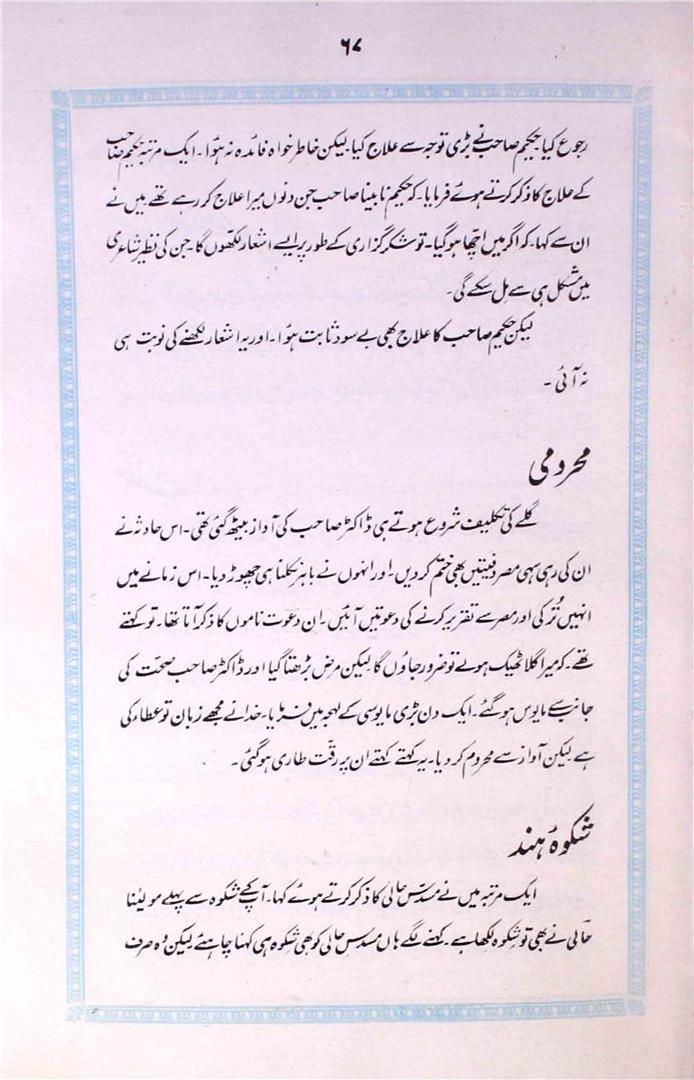 ۶۷
رجوع کیا۔ حکیم صاحب نے بڑی توجہ سے علاج کیا۔ لیکن خاطر خواہ فائدہ نہ ہؤا۔ ایک مرتبہ حکیم صاحب
کے علاج کا ذکر کرتے ہوئے فرمایا۔ کہ حکیم نابینا صاحب جن دنوں میرا علاج کر رہے تھے میں نے
ان سے کہا۔ کہ اگر میں اچھا ہو گیا۔ تو شکر گزاری کے طور پر ایسے اشعار لکھوں گا۔ جن کی نظیر شاعری
میں مشکل ہی سے مل سکے گی۔
لیکن حکیم صاحب کا علاج بھی بے سود ثابت ہؤا۔ اور یہ اشعار لکھنے کی نوبت ہی
نہ آئی۔
محرومی
گلے کی تکلیف شروع ہوتے ہی ڈاکٹر صاحب کی آواز بیٹھ گئی تھی۔ اس حادثہ نے
ان کی رہی سہی مصروفیتیں بھی ختم کر دیں۔ اور انہوں نے باہر نکلنا ہی چھوڑ دیا۔ اس زمانے میں
انہیں تُرکی اور مصر سے تقریر کرنے کی دعوتیں آئیں۔ اِن دعوت ناموں کا ذکر آتا تھا۔ تو کہتے
تھے۔ کہ میرا گلا ٹھیک ہولے تو ضرور جاؤں گا لیکن مرض بڑھتا گیا اور ڈاکٹر صاحب صحت کی
جانب سے مایوس ہو گئے۔ ایک دن بڑی مایوسی کے لہجہ میں فرمایا۔ خدا نے مجھے زبان تو عطاء کی
ہے لیکن آواز سے محروم کر دیا۔ یہ کہتے کہتے ان پر رقّت طاری ہو گئی۔
شکوۂ ہند
ایک مرتبہ میں نے مسدّس حالی کا ذکر کرتے ہوئے کہا۔ آپ کے شکوہ سے پہلے مولیٰنا
حالی نے بھی تو شِکوہ لکھا ہے۔ کہنے لگے ہاں مسدس حالی کو بھی شِکوہ ہی کہنا چاہئے لیکن وُہ صرف